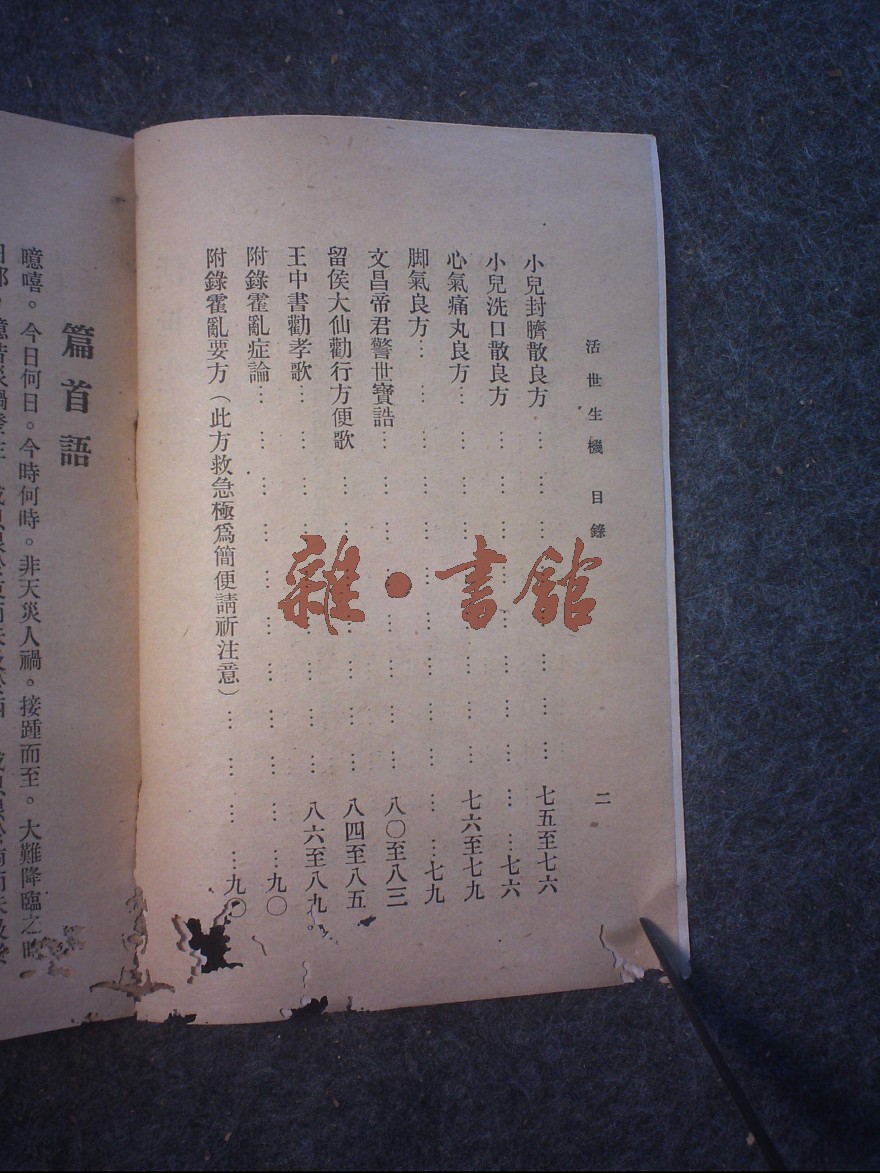 活世生機 目錄 二
小兒封臍散良方…………………七五至七六
小兒洗口散良方…………………七六
心氣痛丸良方…………………七六至七九
脚氣良方…………………七九
文昌帝君警世寶誥…………………八〇至八三
留侯大仙勸行方便歌…………………八四至八五
王中書勸孝歌…………………八六至八九。
附錄霍亂症論…………………九〇
附錄霍亂要方（此方救急極爲簡便請祈注意）…………九〇
篇首語
噫嘻。今日何日。今時何時。非天災人禍。接踵而至。大難降臨之時
雜·書館